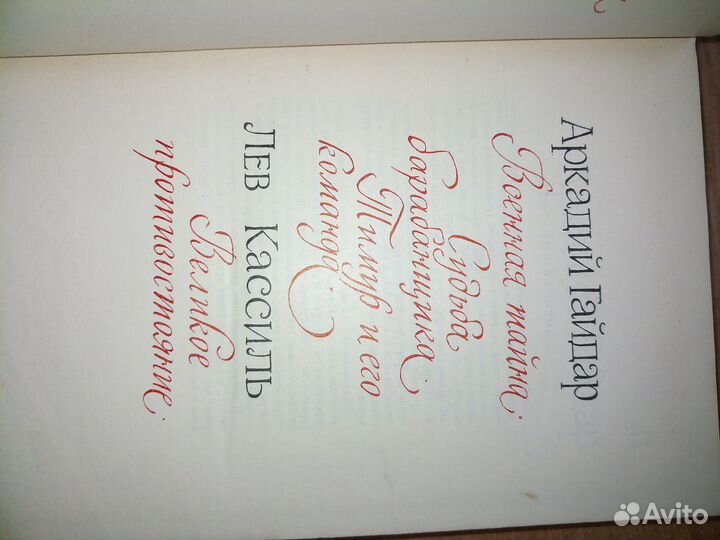 Аркадий Гайдар
Военная тайна.
Судьба
барабанщика.
Тимур и его
команда.
Лев Кассиль
Великое
противостояние.
Avito